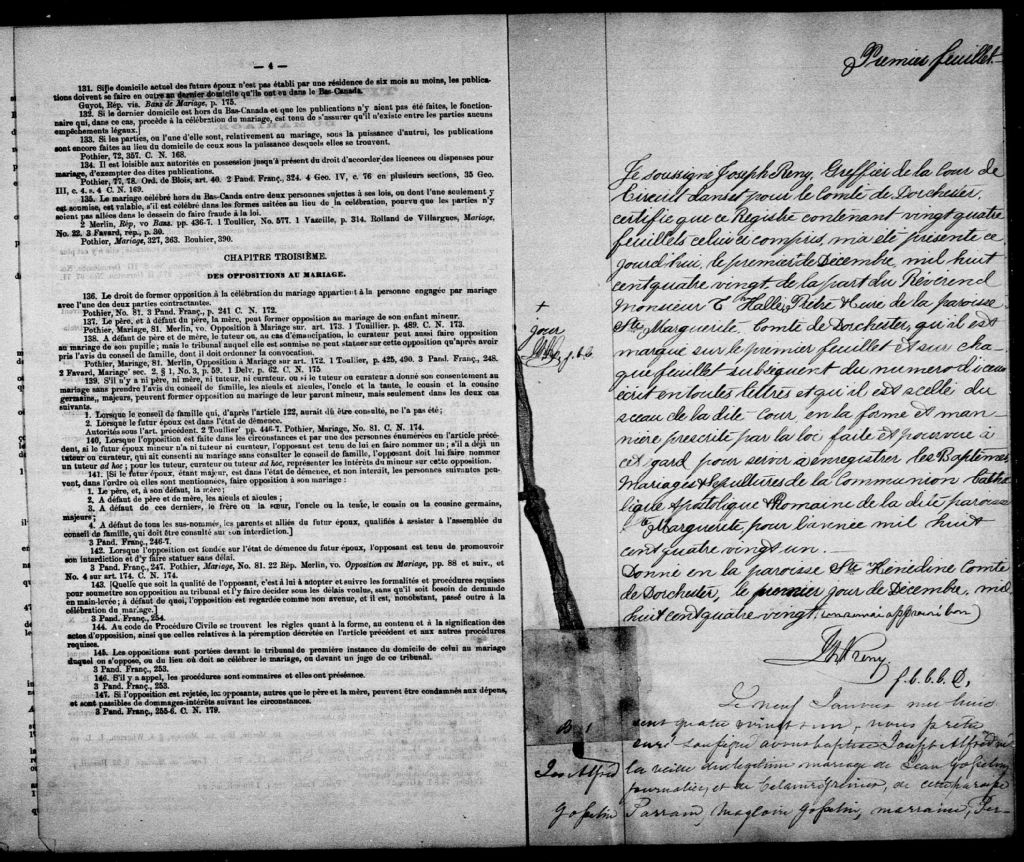 — 4 —
131. Si le domicile actuel des futurs époux n'est pas établi par une résidence de six mois au moins, les publica-
tions doivent se faire en outre au dernier domicile qu'ils ont eu dans le Bas-Canada.
Guyot, Rép. vis. Bans de Mariage, p. 175.
132. Si le dernier domicile est hors du Bas-Canada et que les publications n'y aient pas été faites, le fonction-
naire qui, dans ce cas, procède à la célébration du mariage, est tenu de s'assurer qu'il n'existe entre les parties aucuns
empêchements légaux.
133. Si les parties, ou l'une d'elle sont, relativement au mariage, sous la puissance d'autrui, les publications
sont encore faites au lieu du domicile de ceux sous la puissance desquels elles se trouvent.
Pothier, 72, 357. C. N. 168.
134. Il est loisible aux autorités en possession jusqu'à présent du droit d'accorder des licences ou dispenses pour
mariage, d'exempter des dites publications.
Pothier, 77, 78. Ord. de Blois, art. 40. 2 Pand. Franç., 324. 4 Geo. IV, c. 76 en plusieurs sections, 35 Geo.
III, c. 4. s. 4 C. N. 169.
135. Le mariage célébré hors du Bas-Canada entre deux personnes sujettes à ses lois, ou dont l'une seulement y
est soumise, est valable, s'il est célébré dans les formes usitées au lieu de la célébration, pourvu que les parties n'y
soient pas allées dans le dessein de faire fraude à la loi.
2 Merlin, Rép, vo Bans. pp. 436-7. 1 Toullier, No. 577. 1 Vazeille, p. 314. Rolland de Villargues, Mariage,
No. 22. 3 Favard, rép., p. 30.
Pothier, Mariage, 327, 363. Bouhier, 390.
CHAPITRE TROISIÈME.
DES OPPOSITIONS AU MARIAGE.
136. Le droit de former opposition à la célébration du mariage appartient à la personne engagée par mariage
avec l'une des deux parties contractantes.
Pothier, No. 81. 3 Pand. Franç., p. 241 C. N. 172.
137. Le père, et à défaut du père, la mère, peut former opposition au mariage de son enfant mineur.
Pothier, Mariage, 81. Merlin, vo. Opposition à Mariage sur. art. 173. 1 Touillier. p. 489. C. N. 173.
138. A défaut de père et de mère, le tuteur ou, au cas d'émancipation, le curateur peut aussi faire opposition
au mariage de son pupille ; mais le tribunal auquel elle est soumise ne peut statuer sur cette opposition qu'après avoir
pris l'avis du conseil de famille, dont il doit ordonner la convocation.
Pothier, Mariage, 81. Merlin, Opposition à Mariage sur art. 172. 1 Toullier, p. 425, 490. 3 Pand. Franç., 248.
2 Favard, Mariage sec. 2. § 1, No. 3, p. 59. 1 Delv. p. 62. C. N. 175
139. S'il n'y a ni père, ni mère, ni tuteur, ni curateur, ou si le tuteur ou curateur a donné son consentement au
mariage sans prendre l'avis du conseil de famille, les aïeuls et aïeules, l'oncle et la tante, le cousin et la cousine
germains,, majeurs, peuvent former opposition au mariage de leur parent mineur, mais seulement dans les deux cas
suivants.
1. Lorsque le conseil de famille qui, d'après l'article 122, aurait dû être consulté, ne l'a pas été ;
2. Lorsque le futur époux est dans l'état de démence.
Autorités sous l'art. précédent. 2 Toullier pp. 446-7. Pothier, Mariage, No. 81. C. N. 174.
140. Lorsque l'opposition est faite dans les circonstances et par une des personnes énumérées en l'article précé-
dent, si le futur époux mineur n'a ni tuteur ni curateur, l'opposant est tenu de lui en faire nommer un ; s'il a déjà un
tuteur ou curateur, qui ait consenti au mariage sans consulter le conseil de famille, l'opposant doit lui faire nommer
un tuteur ad hoc ; pour les tuteur, curateur ou tuteur ad hoc, représenter les intérêts du mineur sur cette opposition.
141. [Si le futur époux, étant majeur, est dans l'état de démence, et non interdit, les personnes suivantes peu-
vent, dans l'ordre où elles sont mentionnées, faire opposition à son mariage :
1. Le père, et, à son défaut, la mère ;
2. A défaut de père et de mère, les aïeuls et aïeules ;
3. A défaut de ces derniers, le frère ou la sœur, l'oncle ou la tante, le cousin ou la cousine germains,
majeurs ;
4. A défaut de tous les sus-nommés, les parents et alliés du futur époux, qualifiés à assister à l'assemblée du
conseil de famille, qui doit être consulté sur son interdiction.]
3 Pand. Franç., 246-7.
142. Lorsque l'opposition est fondée sur l'état de démence du futur époux, l'opposant est tenu de promouvoir
son interdiction et d'y faire statuer sans délai.
3 Pand. Franç., 247. Pothier, Mariage, No. 81. 22 Rép. Merlin, vo. Opposition au Mariage, pp. 88 et suiv., et
No. 4 sur art. 174. C. N. 174.
143. [Quelle que soit la qualité de l'opposant, c'est à lui à adopter et suivre les formalités et procédures requises
pour soumettre son opposition au tribunal et l'y faire décider sous les délais voulus, sans qu'il soit besoin de demande
en main-levée ; à défaut de quoi, l'opposition est regardée comme non avenue, et il est, nonobstant, passé outre à la
célébration du mariage.]
3 Pand. Franç., 254.
144. Au code de Procédure Civile se trouvent les règles quant à la forme, au contenu et à la signification des
actes d'opposition, ainsi que celles relatives à la péremption décrétée en l'article précédent et aux autres procédures
requises.
145. Les oppositions sont portées devant le tribunal de première instance du domicile de celui au mariage
duquel on s'oppose, ou du lieu où doit se célébrer le mariage, ou devant un juge de ce tribunal.
3 Pand. Franç., 253.
146. S'il y a appel, les procédures sont sommaires et elles ont préséance.
3 Pand. Franç., 253.
147. Si l'opposition est rejetée, les opposants, autres que le père et la mère, peuvent être condamnés aux dépens,
et sont passibles de dommages-intérêts suivant les circonstances.
3 Pand. Franç., 255-6. C. N. 179.
Premier feuillet
Je soussigné Joseph Reny, Greffier de la Cour de
Circuit dans et pour le Comté de Dorchester,
certifie que ce Registre contenant vingt quatre
feuillets celui ci compris, m'a été présenté ce
jourd'hui, le premier de Décembre, mil huit
cent quatre vingt, de la part du Révérend
Monsieur Hallé, Prêtre & Curé de la paroisse
Ste Marguerite, Comté de Dorchester, qu'il est
marqué sur le premier feuillet et sur cha
que feuillet subséquent du numéro d'iceux
écrit en toutes lettres et qu'il est scellé du
sceau de la dite Cour en la forme et man-
nière prescrite par la loi faite et pourvue à
cet égard pour servir à enregistrer les Baptêmes
Mariages & Sépultures de la Communion Catho
lique Apostolique & Romaine de la dite paroisse
Ste Marguerite, pour l'année mil huit
cent quatre vingt un.
Donné en la paroisse Ste Hénédine Comté
de Dorchester, le premier jour de Décembre, mil
huit cent quatre vingt,
Reny
+
jour
B. 1
Jos Alfred
Gosselin
Le neuf Janvier mil huit
cent quatre vingt un, nous prêtre
curé soussigné avons baptisé Joseph Alfred né
la veille du légitime mariage de Jean Gosselin
journalier, et de de cette paroisse
Parrain, Magloire Gosselin, marraine,